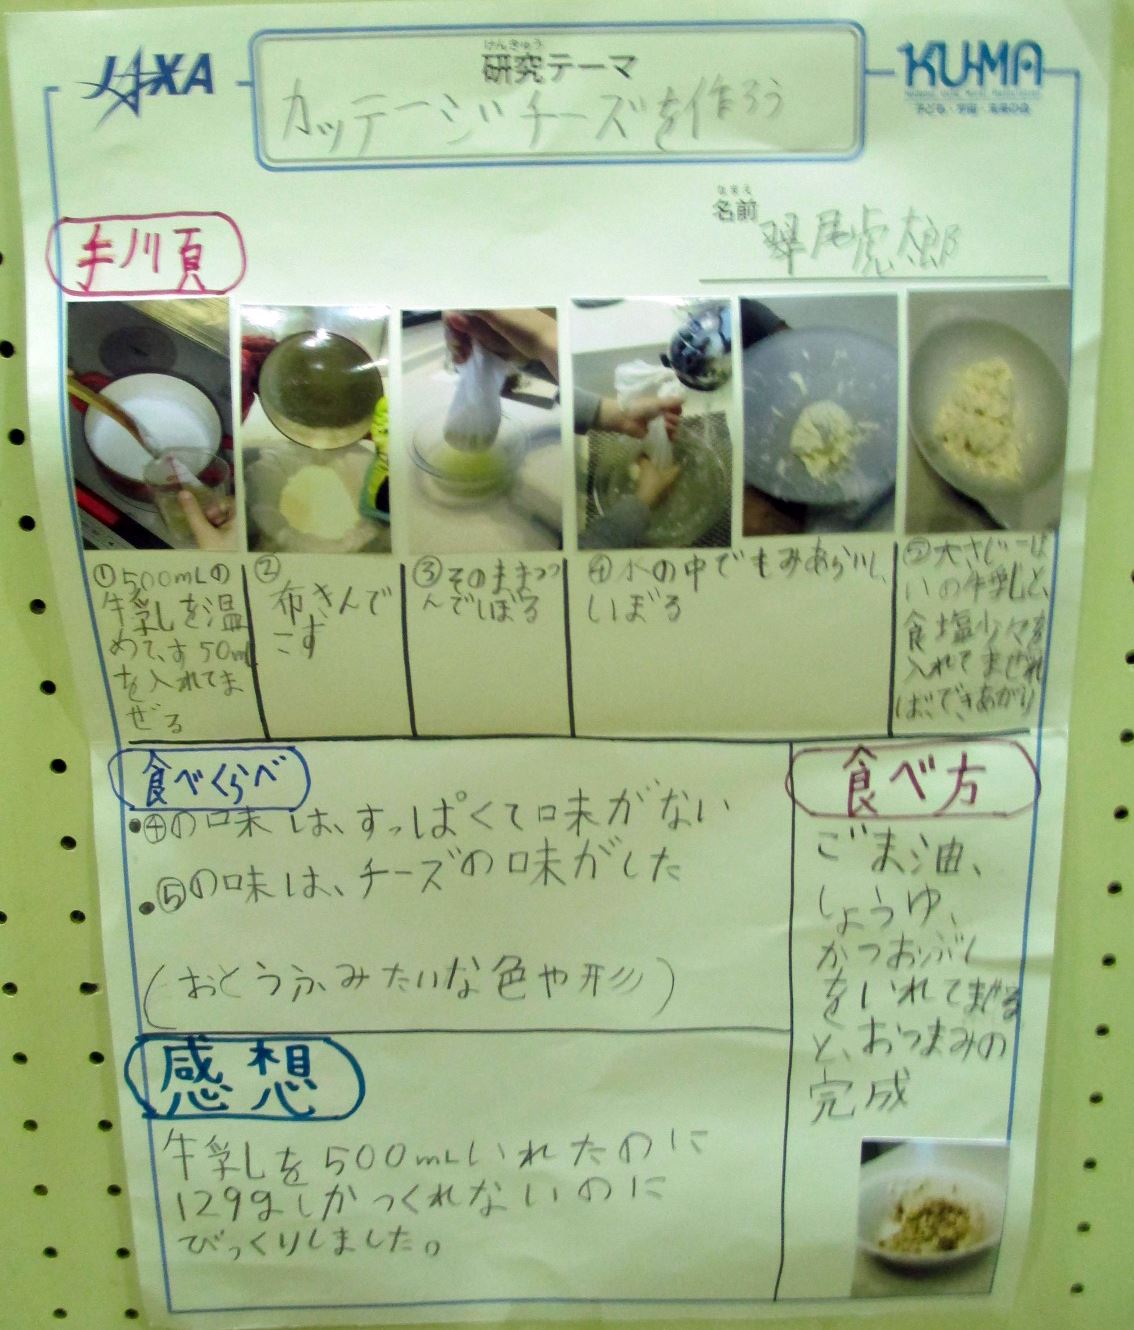 JAXA
けんきゅう
研究テーマ
KU-MA
子ども・宇宙・未来の会
カッテージチーズを作ろう
なまえ
名前
尾虎太郎
手順
①500mLの
牛乳を温
めて、す50mL
を入れてま
ぜる
②
布きんで
こす
③そのままつつ
んでしぼる
④水の中でもみあらいし、
しぼる
⑤大さじ一ぱ
いの牛乳と、
食塩少々を
入れてまぜれ
ば、できあがり
食べくらべ
•④の味は、すっぱくて味がない
•⑤の味は、チーズの味がした
(おとうふみたいな色や形)
食べ方
ごま油、
しょうゆ、
かつおぶし
をいれてまぜる
と、おつまみの
完成
感想
牛乳を500mLいれたのに
129gしかつくれないのに
びっくりしました。